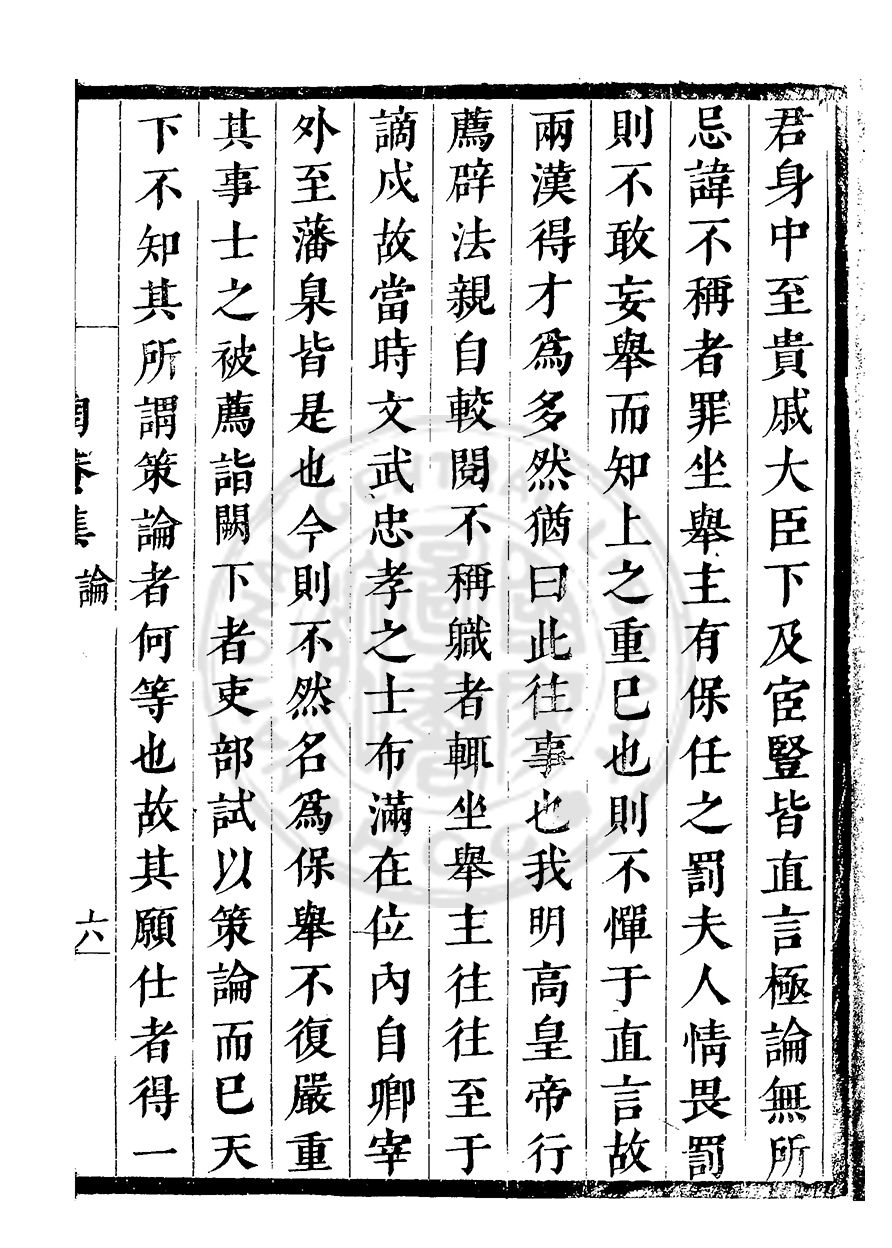 君身中至貴戚大臣下及宦豎皆直言極論無所
忌諱不稱者罪坐舉主有保任之罰夫人情畏罰
則不敢妄舉而知上之重巳也則不憚于直言故
兩漢得才爲多然猶曰此往事也我明高皇帝行
薦辟法親自較閱不稱職者輒坐舉主往往至于
謫戍故當時文武忠孝之士布滿在位內自卿宰
外至藩臬皆是也今則不然名爲保舉不復嚴重
其事士之被薦詣闕下者吏部試以策論而巳天
下不知其所謂策論者何等也故其願仕者得一
集 論
六